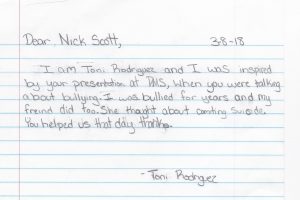 Dear Nick Scott, 3-8-18
I am Toni Rodriguez and I was inspired
by your presentation at DNS, When you were talking
about bullying. I was bullied for years and my
freind did too. She thought about comiting Suicide.
You helped us that day, thanks.
- Toni Rodriguez